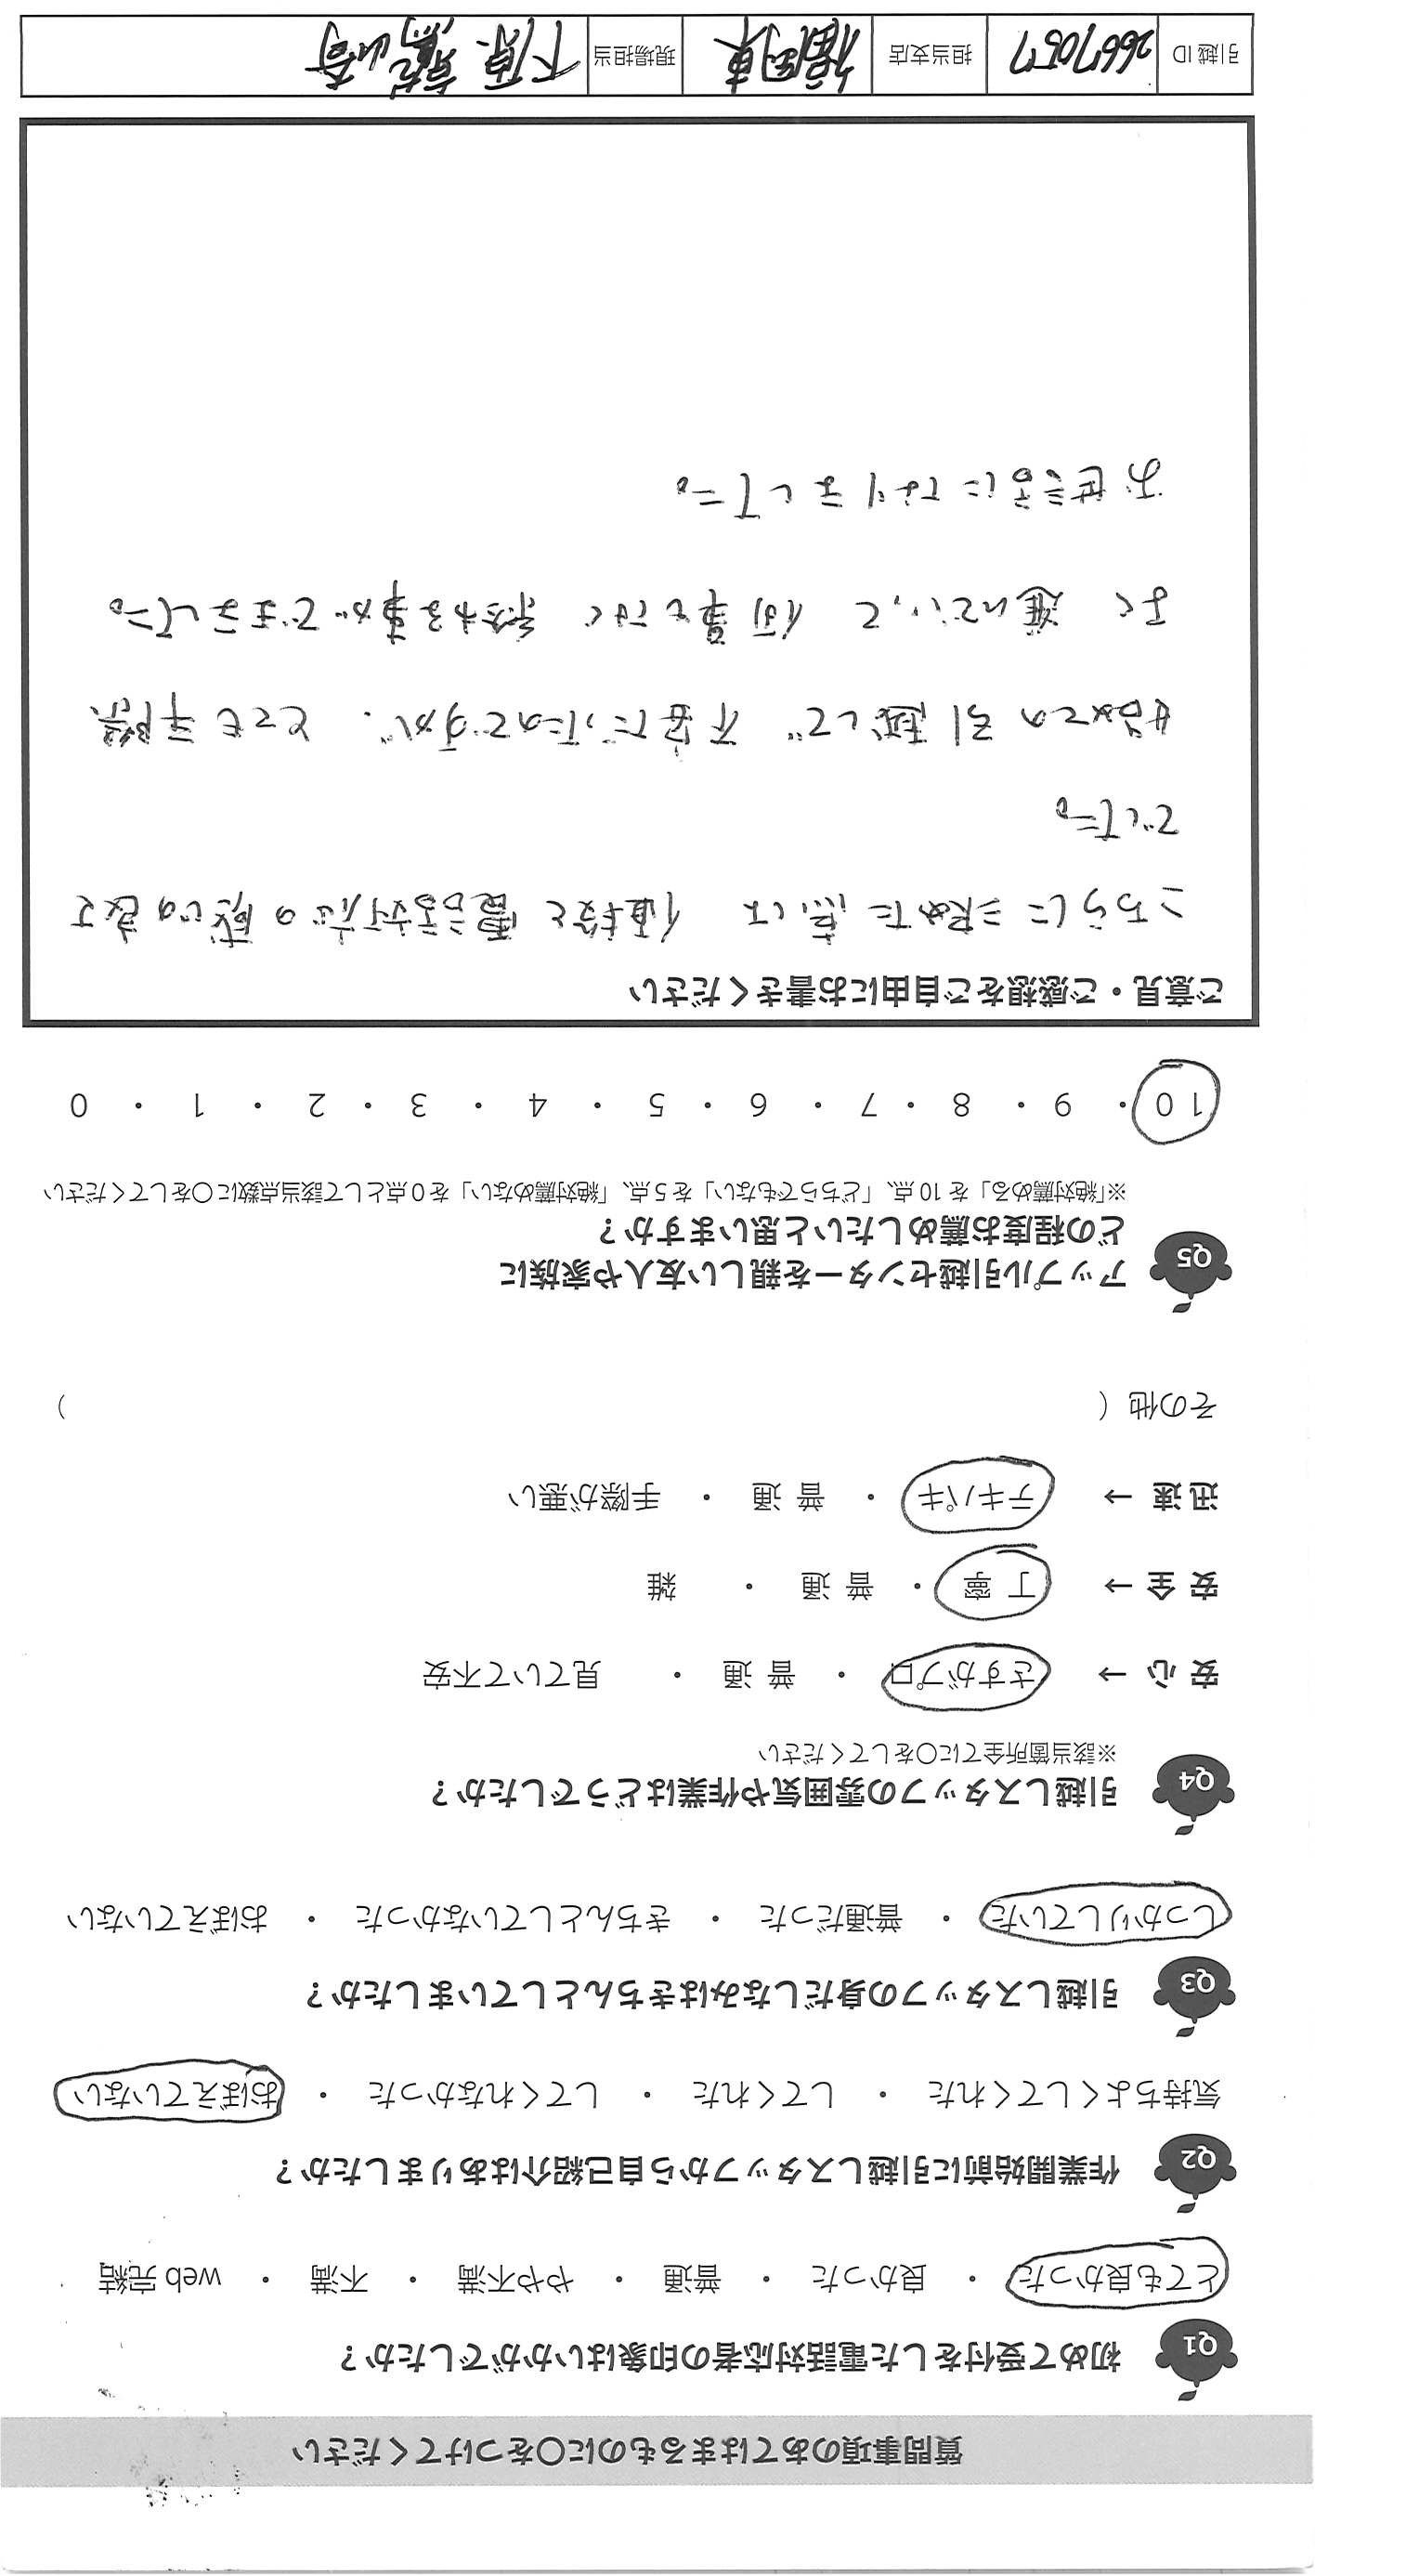 質問事項のあてはまるものに〇をつけてください
Q1 初めて受付をした電話対応者の印象はいかがでしたか？
とても良かった ・ 良かった ・ 普通 ・ やや不満 ・ 不満 ・ web 完結
Q2 作業開始前に引越しスタッフから自己紹介はありましたか？
気持ちよくしてくれた ・ してくれた ・ してくれなかった ・ おぼえていない
Q3 引越しスタッフの身だしなみはきちんとしていましたか？
しっかりしていた ・ 普通だった ・ きちんとしていなかった ・ おぼえていない
Q4 引越しスタッフの雰囲気や作業はどうでしたか？
※該当箇所全てに〇をしてください
安 心 → さすがプロ ・ 普 通 ・ 見ていて不安
安 全 → 丁 寧 ・ 普 通 ・ 雑
迅 速 → テキパキ ・ 普 通 ・ 手際が悪い
その他（ ）
Q5 アップル引越センターを親しい友人や家族に
どの程度お薦めしたいと思いますか？
※「絶対薦める」を 10 点、「どちらでもない」を 5 点、「絶対薦めない」を 0 点として該当点数に〇をしてください
10 ・ 9 ・ 8 ・ 7 ・ 6 ・ 5 ・ 4 ・ 3 ・ 2 ・ 1 ・ 0
ご意見・ご感想をご自由にお書きください
こちらに決めた点は 値段と電話対応の感じの良さ
でした。
始めての引越しで 不安だったのですが、とても手際
よく 進んでいって 何事もなく 終われる事ができました。
お世話になりました。
引越 ID 26670577 担当支店 福岡東 現場担当 下原